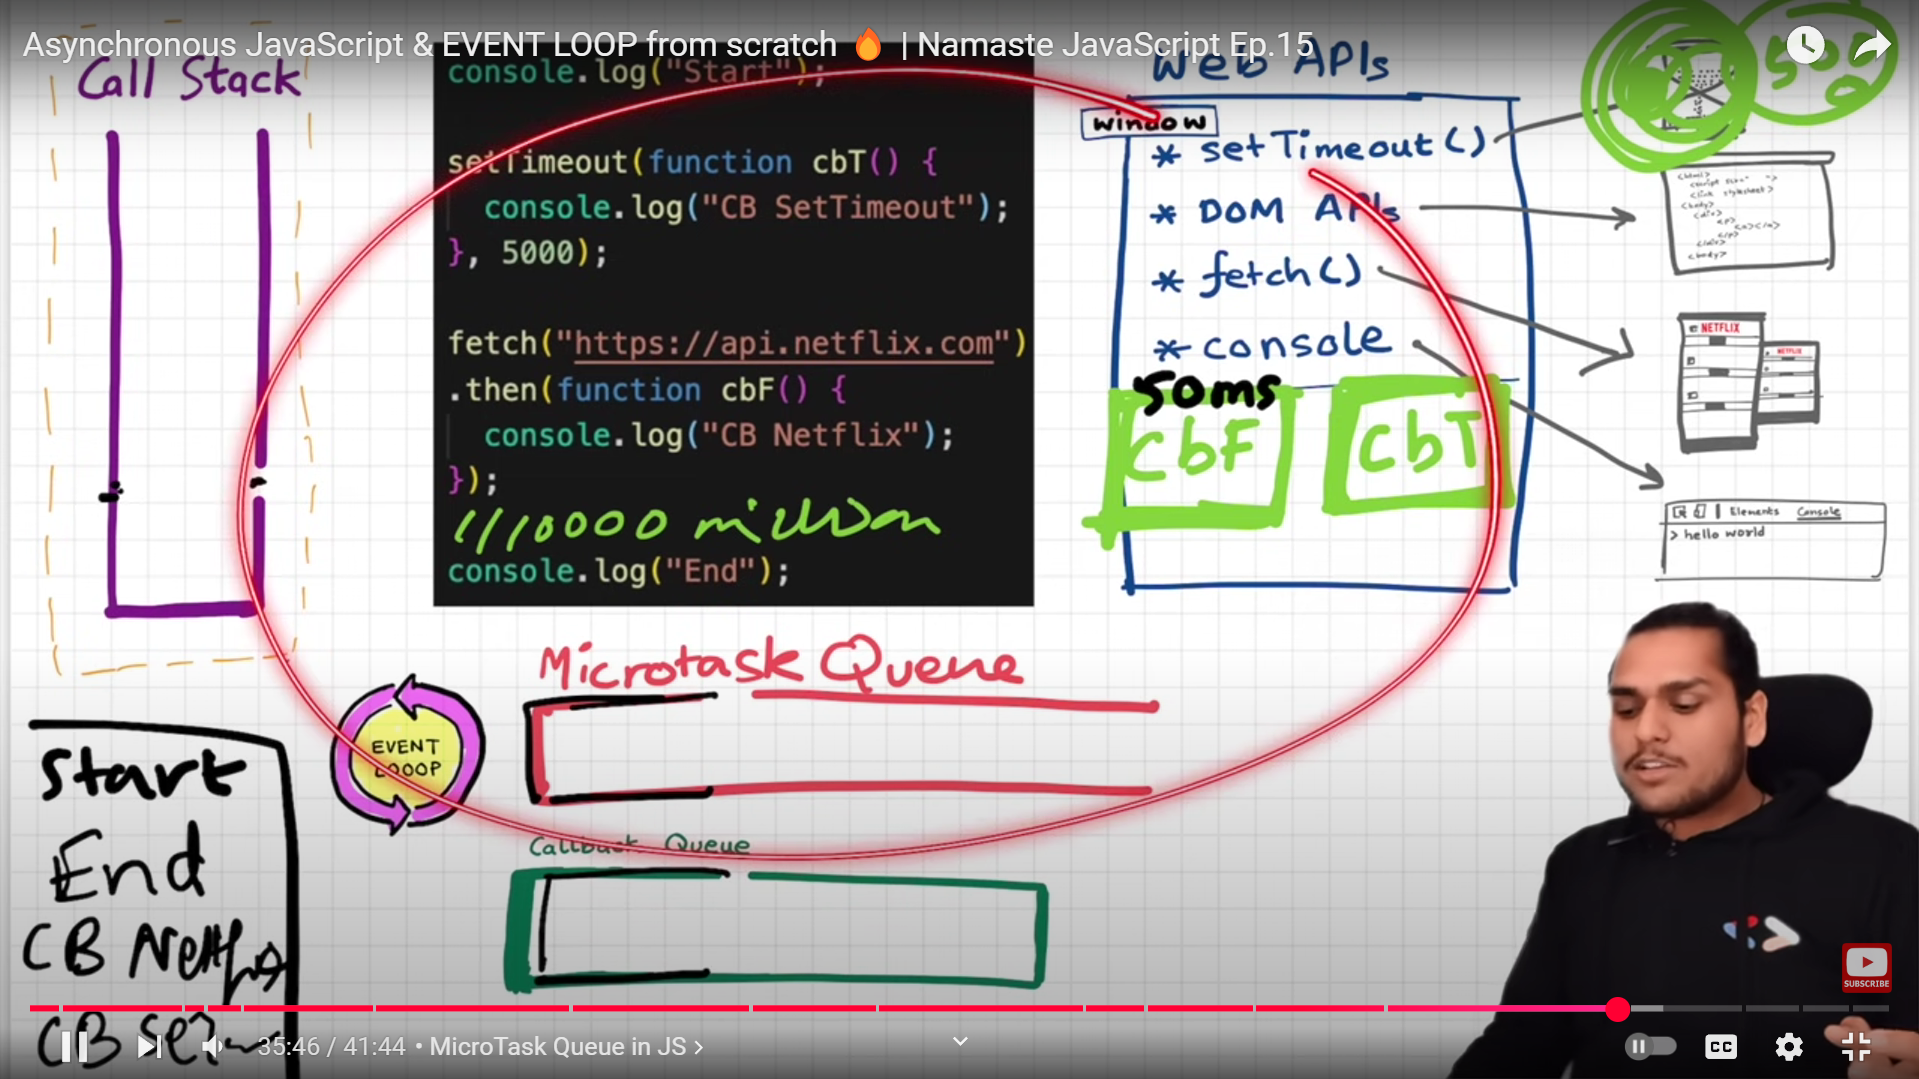 Asynchronous JavaScript & EVENT LOOP from scratch 🔥 | Namaste JavaScript Ep.15
Call Stack
console.log("Start");
setTimeout(function cbT() {
console.log("CB SetTimeout");
}, 5000);
fetch("https://api.netflix.com")
.then(function cbF() {
console.log("CB Netflix");
});
//10000 million
console.log("End");
Web APIs
window
* setTimeout()
* DOM APIs
* fetch()
* console
50ms
CbF
CbT
500
0
<html>
<body>
<div>
<p>
</p>
</div>
<body>
NETFLIX
NETFLIX
Elements Console
> hello world
Microtask Queue
EVENT
LOOOP
Callback Queue
Start
End
CB Netflix
CB Se
35:46 / 41:44 • MicroTask Queue in JS >
CC
SUBSCRIBE